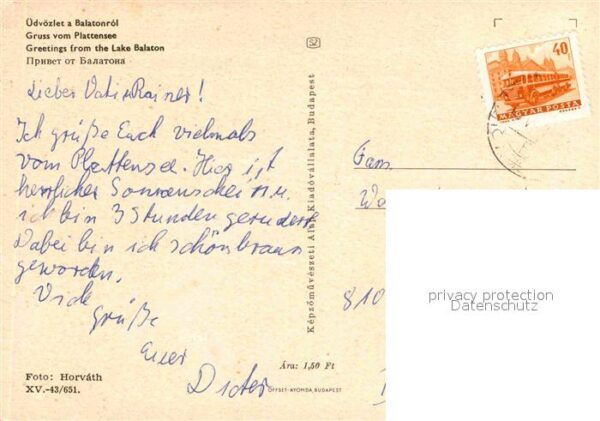 Üdvözlet a Balatonról
Gruss vom Plattensee
Greetings from the Lake Balaton
Привет от Балатона
Lieber Vati + Rainer!
Ich grüße Euch vielmals
vom Plattensee. Hier ist
herrlicher Sonnenschein u.
ich bin 3 Stunden gerudert.
Dabei bin ich schön braun
geworden.
Viele
Grüße
Euer
Dieter
Foto: Horváth
XV.-43/651.
Képzőművészeti Alap Kiadóvállalata, Budapest
SZ
40
MAGYAR POSTA
Fam.
810
Ára: 1,50 Ft
OFFSET-NYOMDA, BUDAPEST
privacy protection
Datenschutz